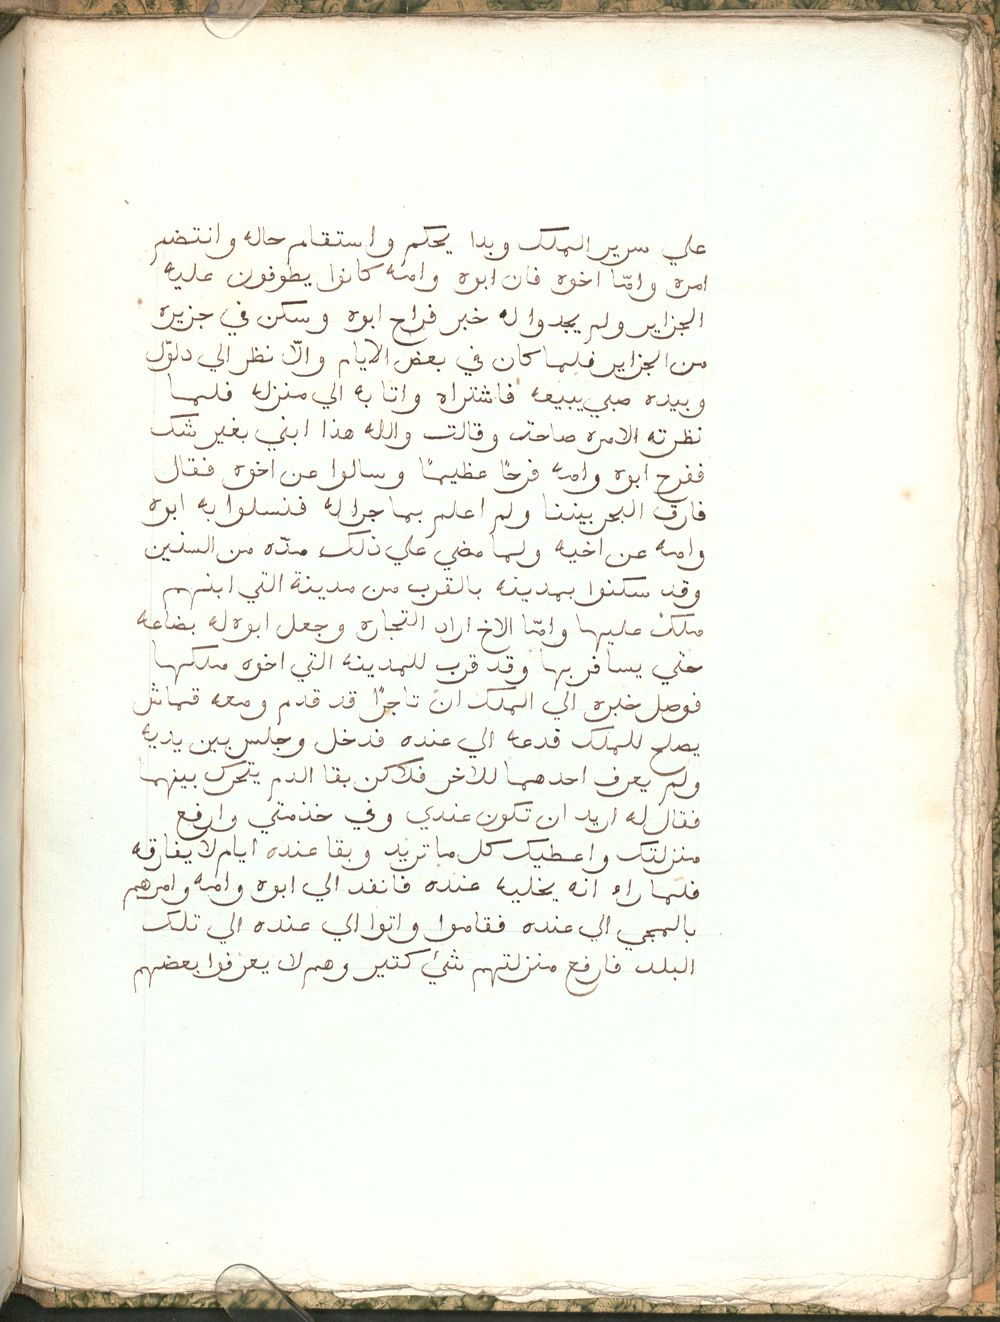 علي سرير الملك وبدا يحكم واستقام حاله وانتضم
امره وامّا اخوه فان ابوه وامه كانوا يطوفون عليه
الجزاير ولم يجدوا له خبر فراح ابوه وسكن في جزيره
من الجزاير فلما كان في بعض الايام والّا نظر الي دلوّل
وبيده صبي يبيعه فاشتراه واتا به الي منزله فلما
نظرته الامره صاحت وقالت والله هذا ابني بغير شك
ففرح ابوه وامه فرحًا عظيمًا وسالوا عن اخوه فقال
فارق البحر بيننا ولم اعلم بما جرا له فنسلوا به ابوه
وامه عن اخيه ولما مضي علي ذلك مدّه من السنين
وقد سكنوا بمدينه بالقرب من مدينة التي ابنهم
ملك عليها وامّا الاخ اراد التجاره وجعل ابوه له بضاعه
حتي يسافر بها وقد قرب للمدينه التي اخوه ملكها
فوصل خبره الي الملك ان تاجرًا قد قدم ومعه قماش
يصلح للملك فدعه الي عنده فدخل وجلس بين يديه
ولم يعرف احدهما للاخر فلاكن بقا الدم يتحرك بينهما
فقال له اريد ان تكون عندي وفي خذمتي وارفع
منزلتك واعطيك كل ما تريد وبقا عنده ايام لا يفارقه
فلما راه انه يخليه عنده فانفد الي ابوه وامه وامرهم
بالمجي الي عنده فقاموا واتوا الي عنده الي تلك
البلد فارفع منزلتهم شئ كتير وهم لا يعرفوا بعضهم